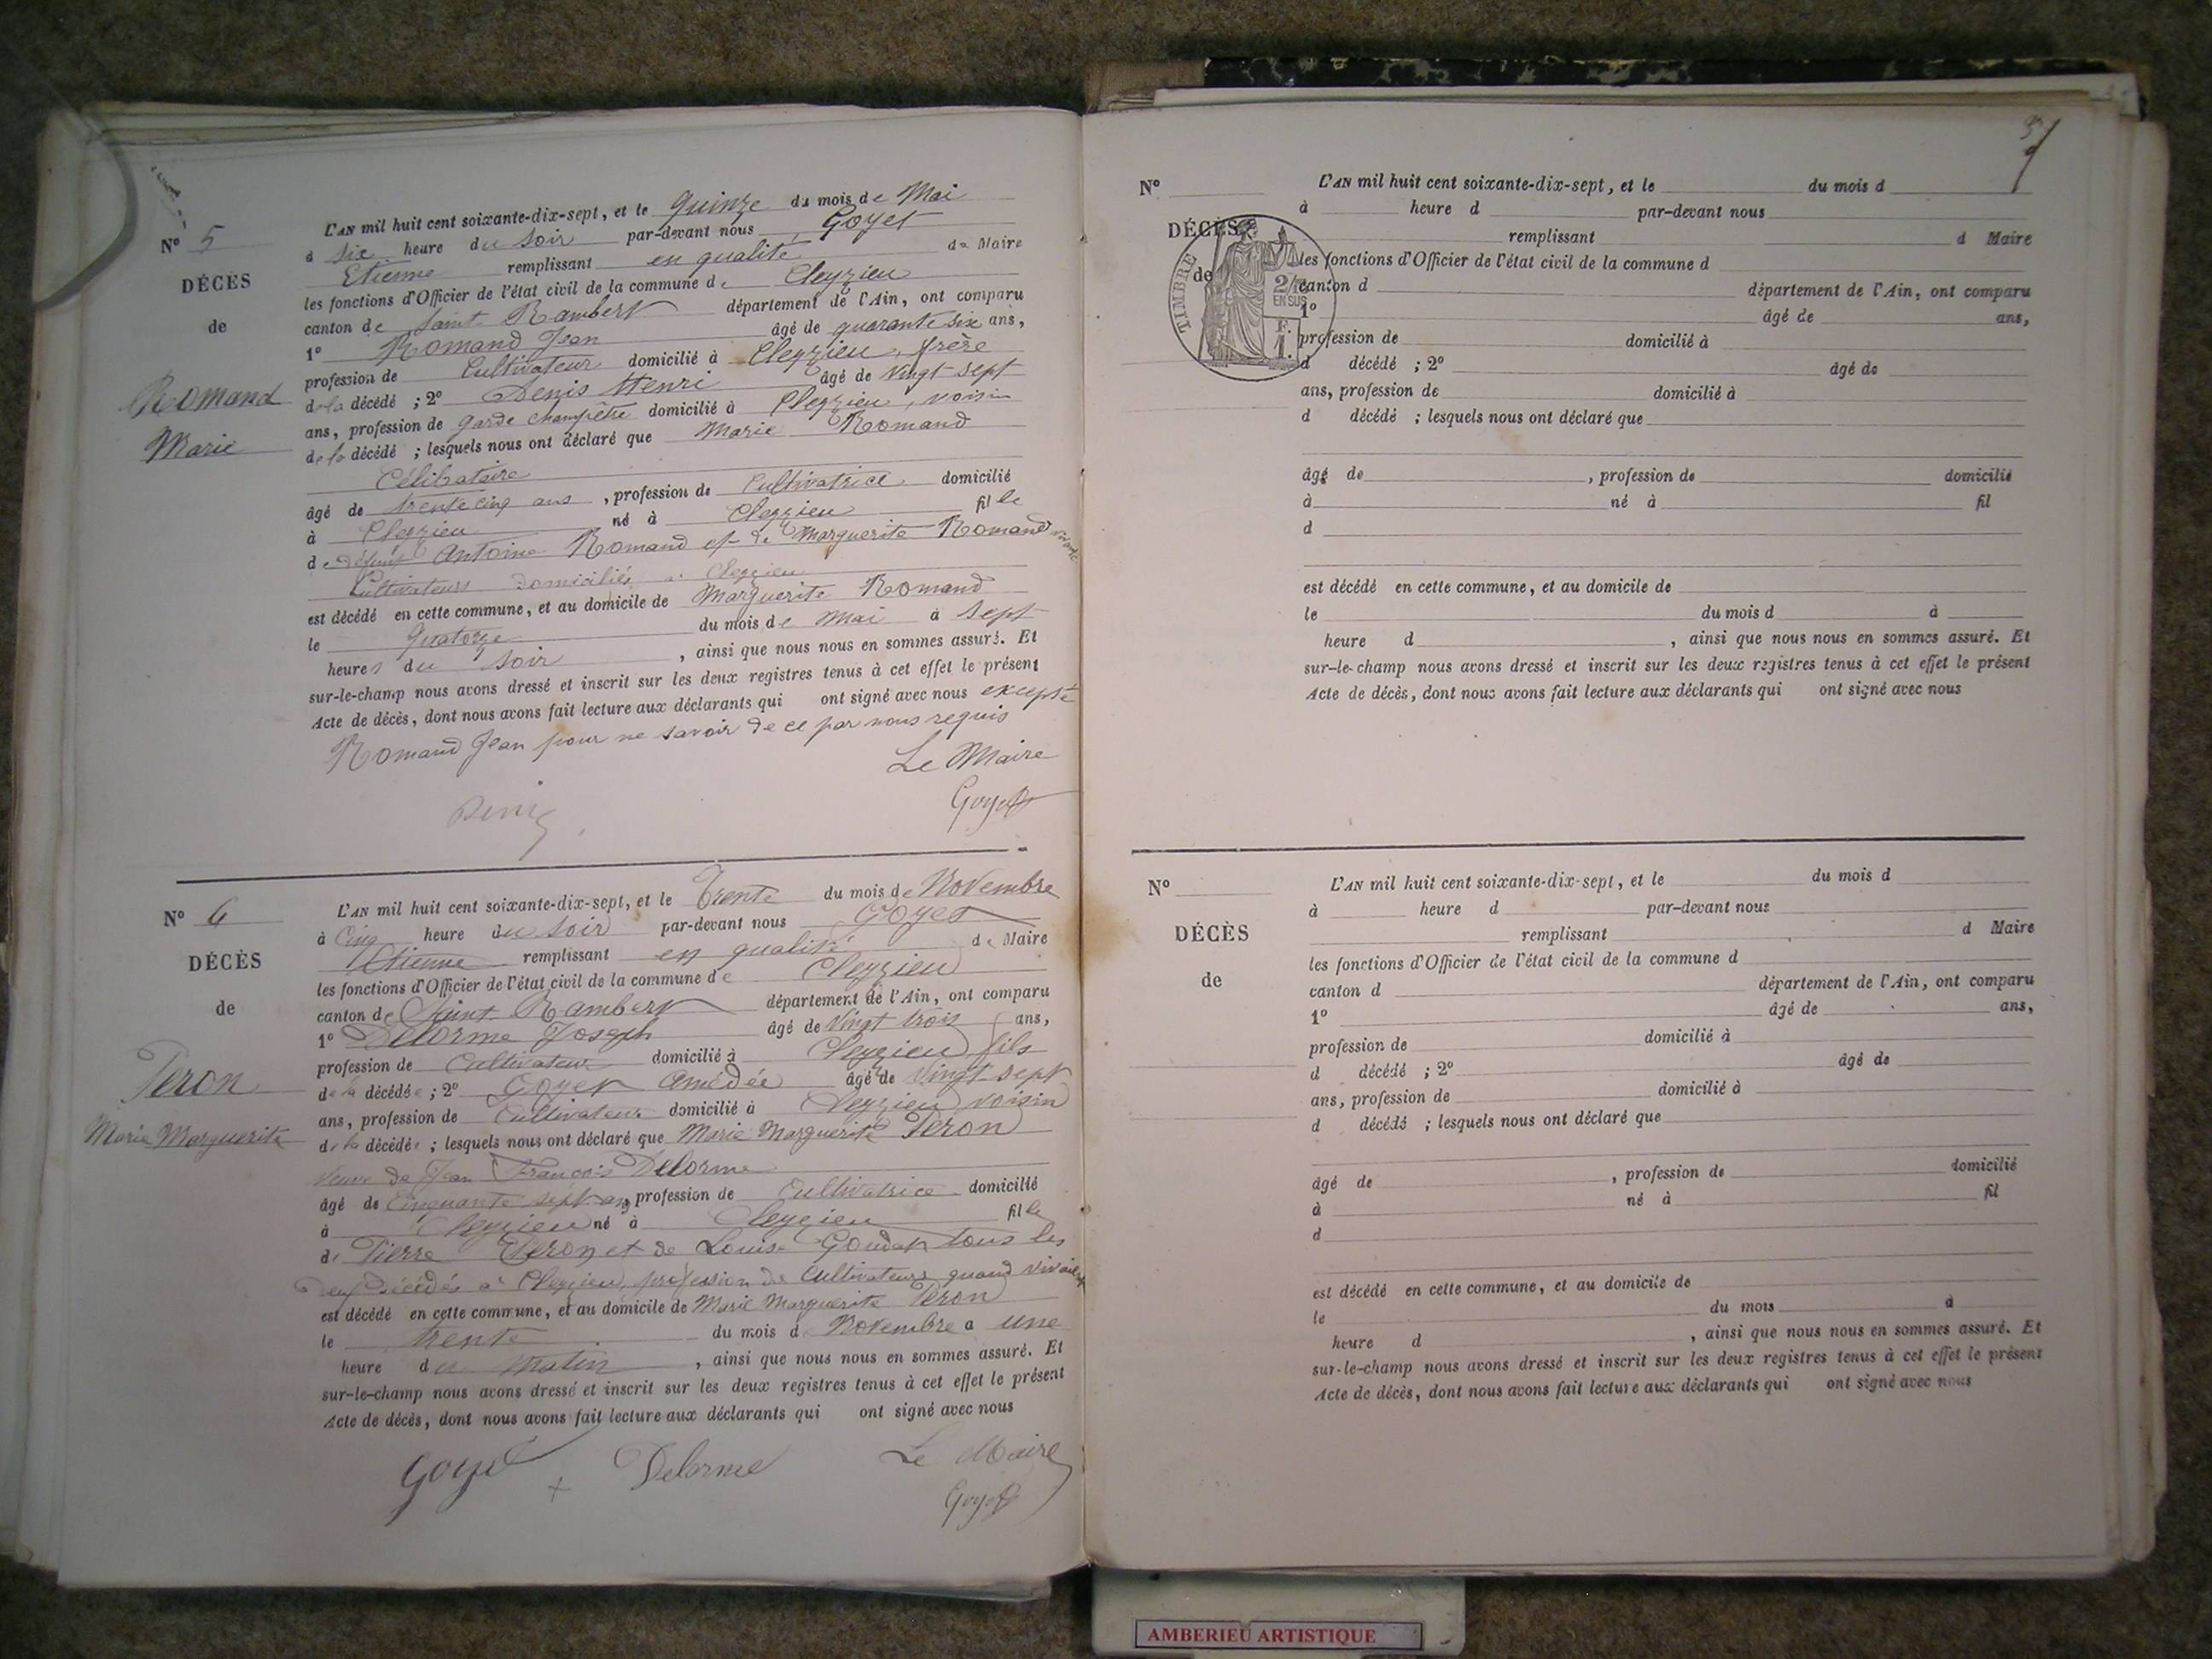 L'AN mil huit cent soixante-dix-sept, et le quinze du mois de Mai
N° 5 à six heure du soir par-devant nous Goyet
Etienne remplissant en qualité de Maire
DÉCÈS les fonctions d'Officier de l'état civil de la commune de Cleyzieu
de canton de Saint-Rambert département de l'Ain, ont comparu
1° Romand Jean âgé de quarante six ans,
profession de Cultivateur domicilié à Cleyzieu, frère
Romand de la décédé ; 2° Denis Henri âgé de vingt sept
ans, profession de garde champêtre domicilié à Cleyzieu, voisin
Marie de la décédé ; lesquels nous ont déclaré que Marie Romand
Célibataire
âgé de trente cinq ans, profession de Cultivatrice domicilié
à Cleyzieu né à Cleyzieu fille
de défunt Antoine Romand et de Marguerite Romand
Cultivateurs domiciliés à Cleyzieu
est décédé en cette commune, et au domicile de Marguerite Romand
le quatorze du mois de Mai à sept
heures du soir, ainsi que nous nous en sommes assuré. Et
sur-le-champ nous avons dressé et inscrit sur les deux registres tenus à cet effet le présent
Acte de décès, dont nous avons fait lecture aux déclarants qui ont signé avec nous excepté
Romand Jean pour ne savoir de ce par nous requis
Le Maire
Denis Goyet
L'AN mil huit cent soixante-dix-sept, et le Trente du mois de Novembre
N° 6 à Cinq heure du soir par-devant nous Goyet
Etienne remplissant en qualité de Maire
DÉCÈS les fonctions d'Officier de l'état civil de la commune de Cleyzieu
de canton de Saint-Rambert département de l'Ain, ont comparu
1° Delorme Joseph âgé de vingt trois ans,
profession de Cultivateur domicilié à Cleyzieu fils
Peron de la décédée ; 2° Goyet Amédée âgé de vingt sept
ans, profession de Cultivateur domicilié à Cleyzieu voisin
Marie Marguerite de la décédée ; lesquels nous ont déclaré que Marie Marguerite Peron
veuve de Jean François Delorme
âgé de Cinquante sept ans profession de Cultivatrice domicilié
à Cleyzieu né à Cleyzieu fille
de Pierre Peron et de Louise Goudet tous les
deux décédés à Cleyzieu, profession de Cultivateurs quand vivaient
est décédé en cette commune, et au domicile de Marie Marguerite Peron
le trente du mois d Novembre a une
heure du matin, ainsi que nous nous en sommes assuré. Et
sur-le-champ nous avons dressé et inscrit sur les deux registres tenus à cet effet le présent
Acte de décès, dont nous avons fait lecture aux déclarants qui ont signé avec nous
Goyet Delorme Le Maire
Goyet
N° L'AN mil huit cent soixante-dix-sept, et le du mois d
à heure d par-devant nous
DÉCÈS remplissant d Maire
les fonctions d'Officier de l'état civil de la commune d
de canton d département de l'Ain, ont comparu
1° âgé de ans,
profession de domicilié à
d décédé ; 2° âgé de
ans, profession de domicilié à
d décédé ; lesquels nous ont déclaré que
âgé de , profession de domicilié
à né à fil
d
est décédé en cette commune, et au domicile de
le du mois d à
heure d , ainsi que nous nous en sommes assuré. Et
sur-le-champ nous avons dressé et inscrit sur les deux registres tenus à cet effet le présent
Acte de décès, dont nous avons fait lecture aux déclarants qui ont signé avec nous
TIMBRE
EN SUS
N° L'AN mil huit cent soixante-dix-sept, et le du mois d
à heure d par-devant nous
DÉCÈS remplissant d Maire
les fonctions d'Officier de l'état civil de la commune d
de canton d département de l'Ain, ont comparu
1° âgé de ans,
profession de domicilié à
d décédé ; 2° âgé de
ans, profession de domicilié à
d décédé ; lesquels nous ont déclaré que
âgé de , profession de domicilié
à né à fil
d
est décédé en cette commune, et au domicile de
le du mois à
heure d , ainsi que nous nous en sommes assuré. Et
sur-le-champ nous avons dressé et inscrit sur les deux registres tenus à cet effet le présent
Acte de décès, dont nous avons fait lecture aux déclarants qui ont signé avec nous
AMBERIEU ARTISTIQUE